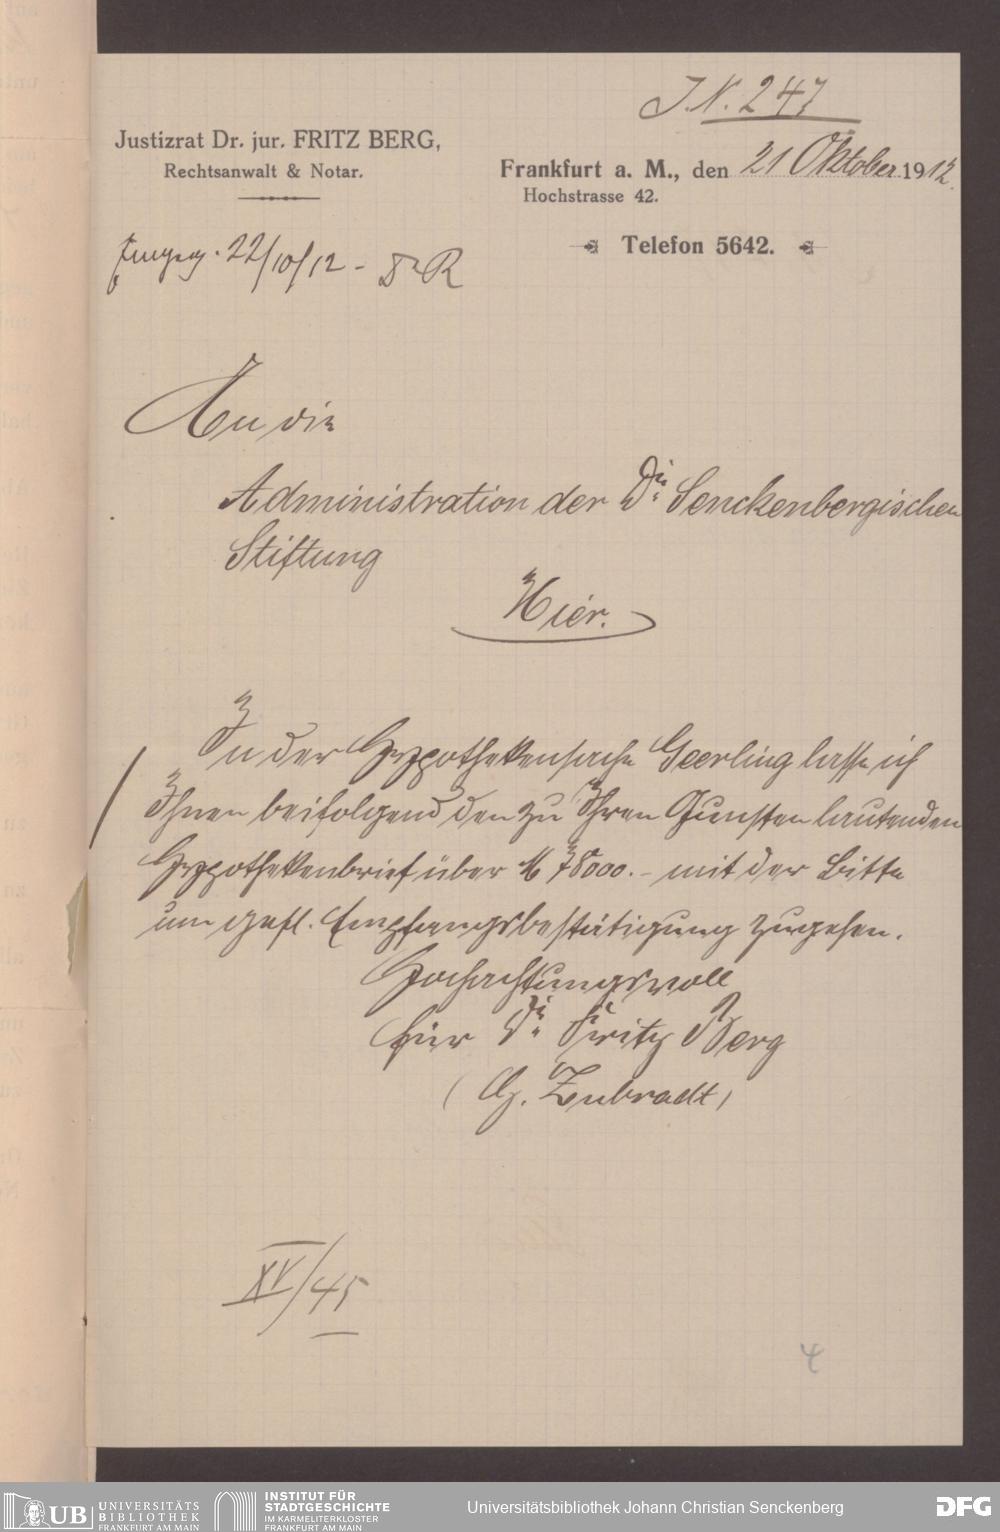 J. N. 247
Justizrat Dr. jur. FRITZ BERG,
Rechtsanwalt & Notar.
Frankfurt a. M., den 21 Oktober 1912.
Hochstrasse 42.
Telefon 5642.
Eingeg. 22/10/12 -
An die
Administration der Dr. Senckenbergischen
Stiftung
Hier.
In der Hypothekensache Geerling lasse ich
Ihnen beifolgend den zu Ihren Gunsten lautenden
Hypothekenbrief über M 78000.- mit der Bitte
um gefl. Empfangsbestätigung zugehen.
Hochachtungsvoll
für Dr. Fritz Berg
XV/45
4
UB UNIVERSITÄTS
BIBLIOTHEK
FRANKFURT AM MAIN
INSTITUT FÜR
STADTGESCHICHTE
IM KARMELITERKLOSTER
FRANKFURT AM MAIN
Universitätsbibliothek Johann Christian Senckenberg
DFG